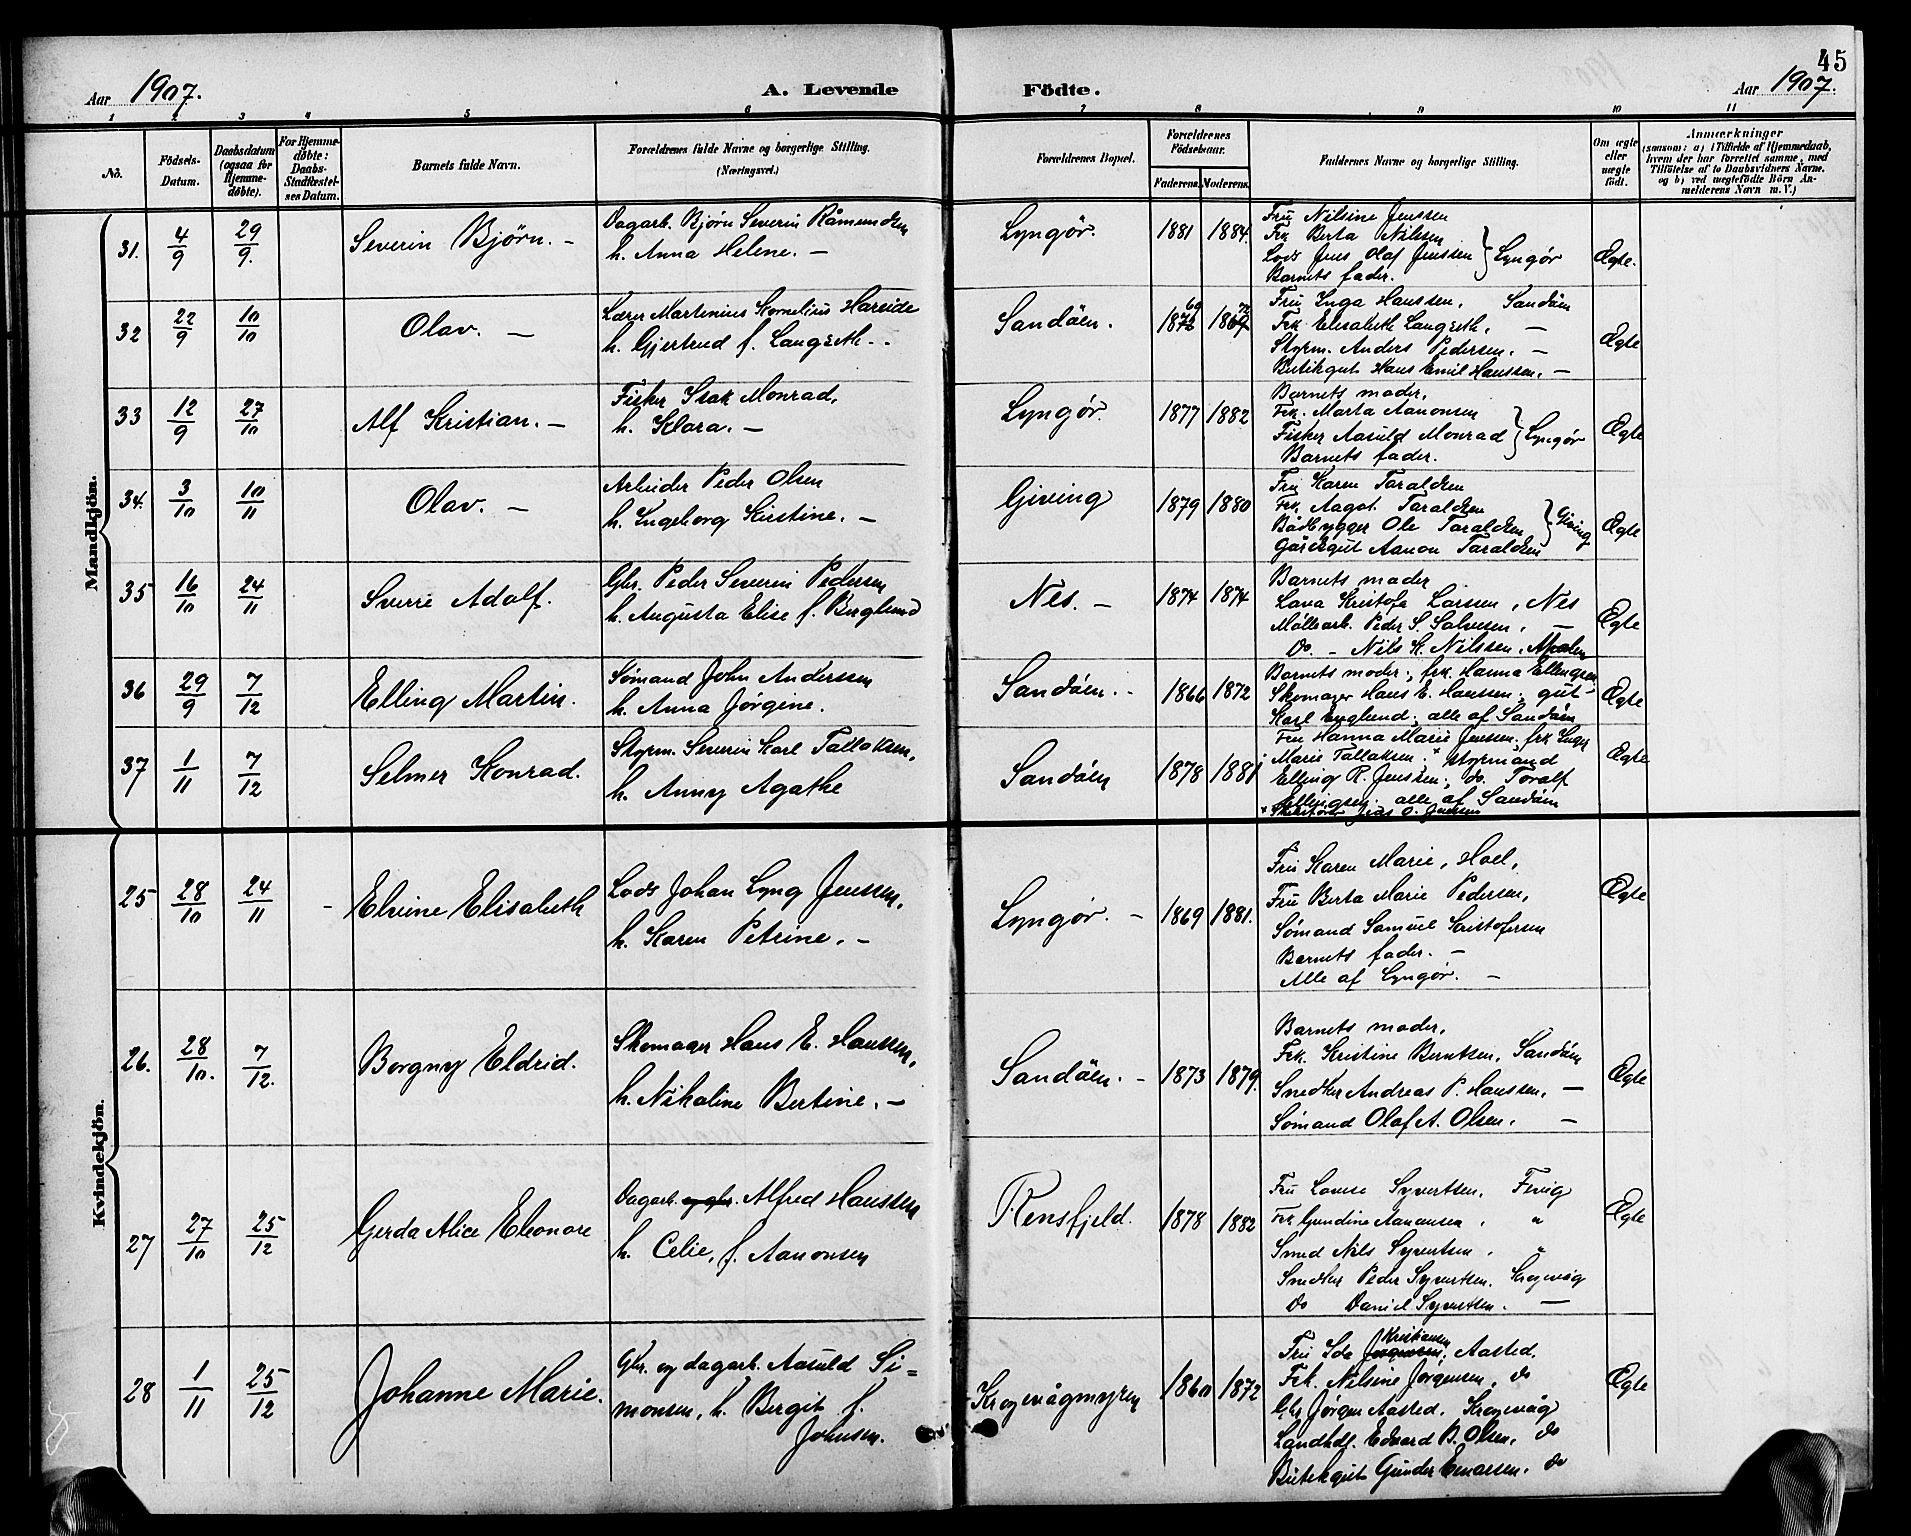 45
Aar 1907.
A. Levende
Födte.
Aar 1907.
1 2 3 4 5 6 7 8 9 10 11
No.
Födsels-
Datum.
Daabsdatum
(ogsaa for
Hjemme-
døbte).
For Hjemme-
døbte:
Daabs-
Stadfæstel-
ses Datum.
Barnets fulde Navn.
Forældrenes fulde Navne og borgerlige Stilling.
(Næringsvei.)
Forældrenes Bopæl.
Forældrenes
Födselsaar.
Faderens. Moderens.
Faddernes Navne og borgerlige Stilling.
Om ægte
eller
uægte
født.
Anmærkninger
(saasom: a) i Tilfælde af Hjemmedaab,
hvem der har forrettet samme, med
Tilföielse af to Daabsvidners Navne,
og b) ved uægtefödte Börn An-
melderens Navn m. V.)
Mandkjön.
31. 4/9 29/9. Severin Bjørn. –
Dagarb. Bjørn Severin Råmundsen
h. Anna Helene. –
Lyngör. 1881 1884.
Fru Nilsine Jenssen
Frk Berta Nilsen
Lods Jens Olaf Jenssen } Lyngör
Barnets fader.
Ægte.
32 22/9 10/10 Olav. –
Lærer Martinius Kornelius Hareide
h. Gjertrud f. Langseth. –
Sandöen.
Fru Inga Hanssen, Sandöen
Frk Elisabeth Langseth, –
Styrm. Anders Pedersen. –
Butikgut Hans Emil Hanssen. –
Ægte
33 12/9 27/10 Alf Kristian. –
Fisker Isak Monrad,
h. Klara. –
Lyngör. 1877 1882
Barnets moder,
Frk. Marta Aanonsen
Fisker Aasuld Monrad } Lyngör
Barnets fader.
Ægte
34. 3/10 10/11 Olav. –
Arbeider Peder Olsen
h. Ingeborg Kirstine. –
Giving 1879 1880
Fru Karen Taraldsen
Frk. Aagot Taraldsen
Bådbygger Ole Taraldsen } Giving
Gårdsgut Aanon Taraldsen
Ægte
35 16/10 24/11 Sverre Adolf.
Gbr. Peder Severin Pedersen
h. Augusta Elise f. Berglund
Nes. – 1874 1874
Barnets moder
Lava Kristofa Larsen, Nes
Mølleearb. Peder S. Salvesen, –
Do. – Nils K. Nilssen,
Ægte
36 29/9 7/12 Elling Martin.
Sømand John Anderssen
h. Anna Jørgine.
Sandöen. – 1866 1872
Barnets moder; frk. Hanna Ellingsen
Skomager Hans E. Hanssen; gut
Karl Englund, alle af Sandöen
Ægte
37 1/11 7/12 Selmer Konrad.
Styrm. Severin Karl Tallaksen,
h. Anny Agathe
Sandöen 1878 1881
Fru Hanna Marie Jensen, frk Inga
Marie Tallaksen; x styrmand
Elling R. Jenssen; do. Toralf
Ellingsen. alle af Sandöen
x Jens O. Jenssen
Ægte
Kvindekjön.
25 28/10 24/11 – Elvine Elisabeth
Lods Johan Lyng Jenssen,
h. Karen Petrine. –
Lyngör. – 1869 1881.
Fru Karen Marie, Hoel,
Fru Berta Marie Pedersen,
Sømand Samuel Kristofersen
Barnets fader. –
Alle af Lyngör. –
Ægte
26. 28/10. 7/12. Borgny Eldrid.
Skomager Hans E. Hanssen,
h. Nikoline Bertine. –
Sandöen. – 1873 1879.
Barnets moder,
Frk. Kristine Berntsen, Sandöen
Snedker Andreas P. Hanssen, –
Sømand Olaf A. Olsen. –
Ægte
27 27/10 25/12 Gerda Alice Eleonore
Dagarb. og gbr. Alfred Hanssen
h. Celie, f. Aanonsen
Rensfjeld. 1878 1882
Fru Lovise Syvertsen,
Frk Gundine Aanonsen, "
Smed Nils Syvertsen. "
Snedker Peder Syvertsen. Krogevåg
do Daniel Syvertsen. –
Ægte
28 1/11 25/12 Johanne Marie.
Gbr. og dagarb. Aasuld Si-
monsen, h. Bergit f.
Johnsen.
Krogevågmyren 1860 1872
Kristiansen
Fru Ida Aasted.
Frk. Nilsine Jørgensen, do
Gbr Jörgen Aasted. Krogevåg
Landhdl. Edvard B. Olsen, do
Butikgut Gunder Einarsen. do
Ægte